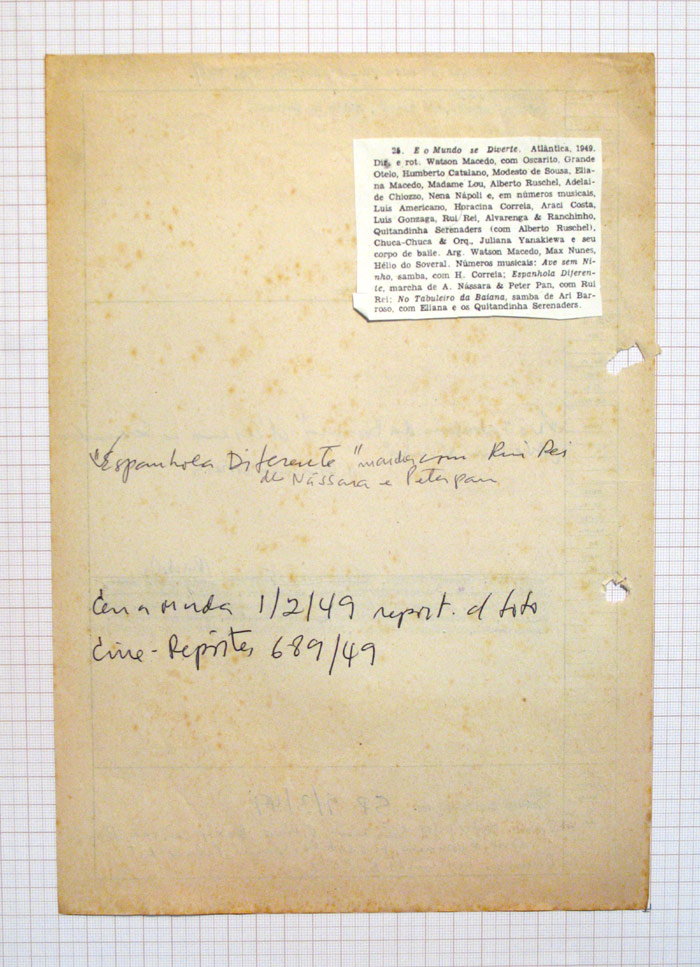 28. E o Mundo se Diverte. Atlântica, 1949.
Dir. e rot. Watson Macedo, com Oscarito, Grande
Otelo, Humberto Catalano, Modesto de Sousa, Elia-
na Macedo, Madame Lou, Alberto Ruschel, Adelai-
de Chiozzo, Nena Nápoli e, em números musicais,
Luis Americano, Horacina Correia, Araci Costa,
Luis Gonzaga, Rui Rei, Alvarenga & Ranchinho,
Quitandinha Serenaders (com Alberto Ruschel),
Chuca-Chuca & Orq., Juliana Yanakiewa e seu
corpo de baile. Arg. Watson Macedo, Max Nunes,
Hélio do Soveral. Números musicais: Ave sem Ni-
nho, samba, com H. Correia; Espanhola Diferen-
te, marcha de A. Nássara & Peter Pan, com Rui
Rei; No Tabuleiro da Baiana, samba de Ari Bar-
roso, com Eliana e os Quitandinha Serenaders.
"Espanhola Diferente" com Rui Rei
de Nássara e Peterpan
Cena muda 1/2/49 report. c/ foto
Cine-Repórter 689/49